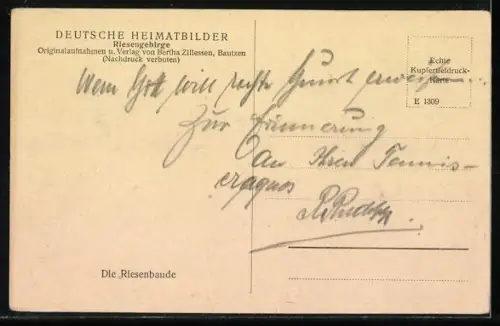 DEUTSCHE HEIMATBILDER
Riesengebirge
Originalaufnahmen u. Verlag von Bertha Zillessen, Bautzen
(Nachdruck verboten)
Echte
Kupfertiefdruck-
Karte
E 1309
Wem Gott will rechte Gunst erweisen...
Zur Erinnerung
an Ihren Tennis-
Die „Riesenbaude